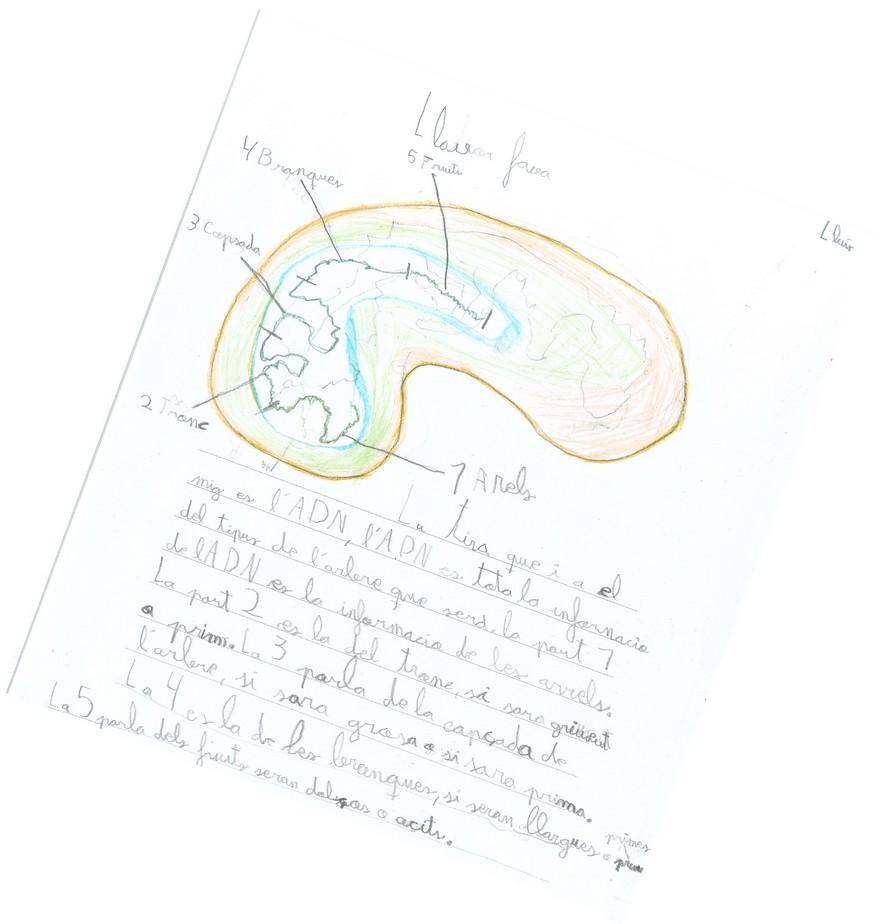 Llavor fava
5 Fruits
4 Branques
Lluís
3 Capsada
2 Tronc
1 Arels
La tira que i a el
mig es l'ADN, l'ADN es tota la informacio
del tipus de l'arbre que será. la part 1
de lADN es la informacio de les arrels.
La part 2 es la del tronc, si sara gruixut
o prim. La 3 parla de la capsada de
l'arbre, si sara grosa o si sara prima.
La 4 es la de les branques, si seran llargues o primes
La 5 parla dels fruits seran dolsos o acits.